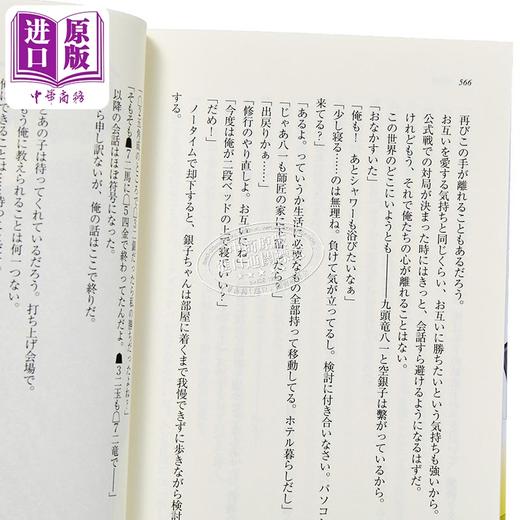 原版
进口
中華商務
566
再びこの手が離れることもあるだろう。
お互いを愛する気持ちと同じくらい、お互いに勝ちたいという気持ちも強いから。
公式戦での対局が決まった時にはきっと、会話すら避けるようになるはずだ。
けれどもう、それで俺たちの心が離れることはない。
この世界のどこにいようとも――九頭竜八一と空銀子は繋がっている。
「おなかすいた」
「俺も！　あとシャワーも浴びたいなぁ」
「少し寝る……のは無理ね。負けて気が立ってるし。検討に付き合いなさい。パソコン
来てる？」
「あるよ。っていうか生活に必要なもの全部持って移動してる。ホテル暮らしだし」
「じゃあ八一も師匠の家に下宿したら？」
「出戻りかぁ……」
「修行のやり直しよ。お互いにね」
「今度は俺が二段ベッドの上で寝ていい？」
「だめ！」
ノータイムで却下すると、銀子ちゃんは部屋に着くまで我慢できずに歩きながら検討
する。
「そもそも☗7
以降の会話はほぼ符号になった。
申し訳ないが、俺の話はここで終りだ。
あの子は待ってくれているだろう。打ち上げ会場で。
もう俺に教えられることは何一つない。